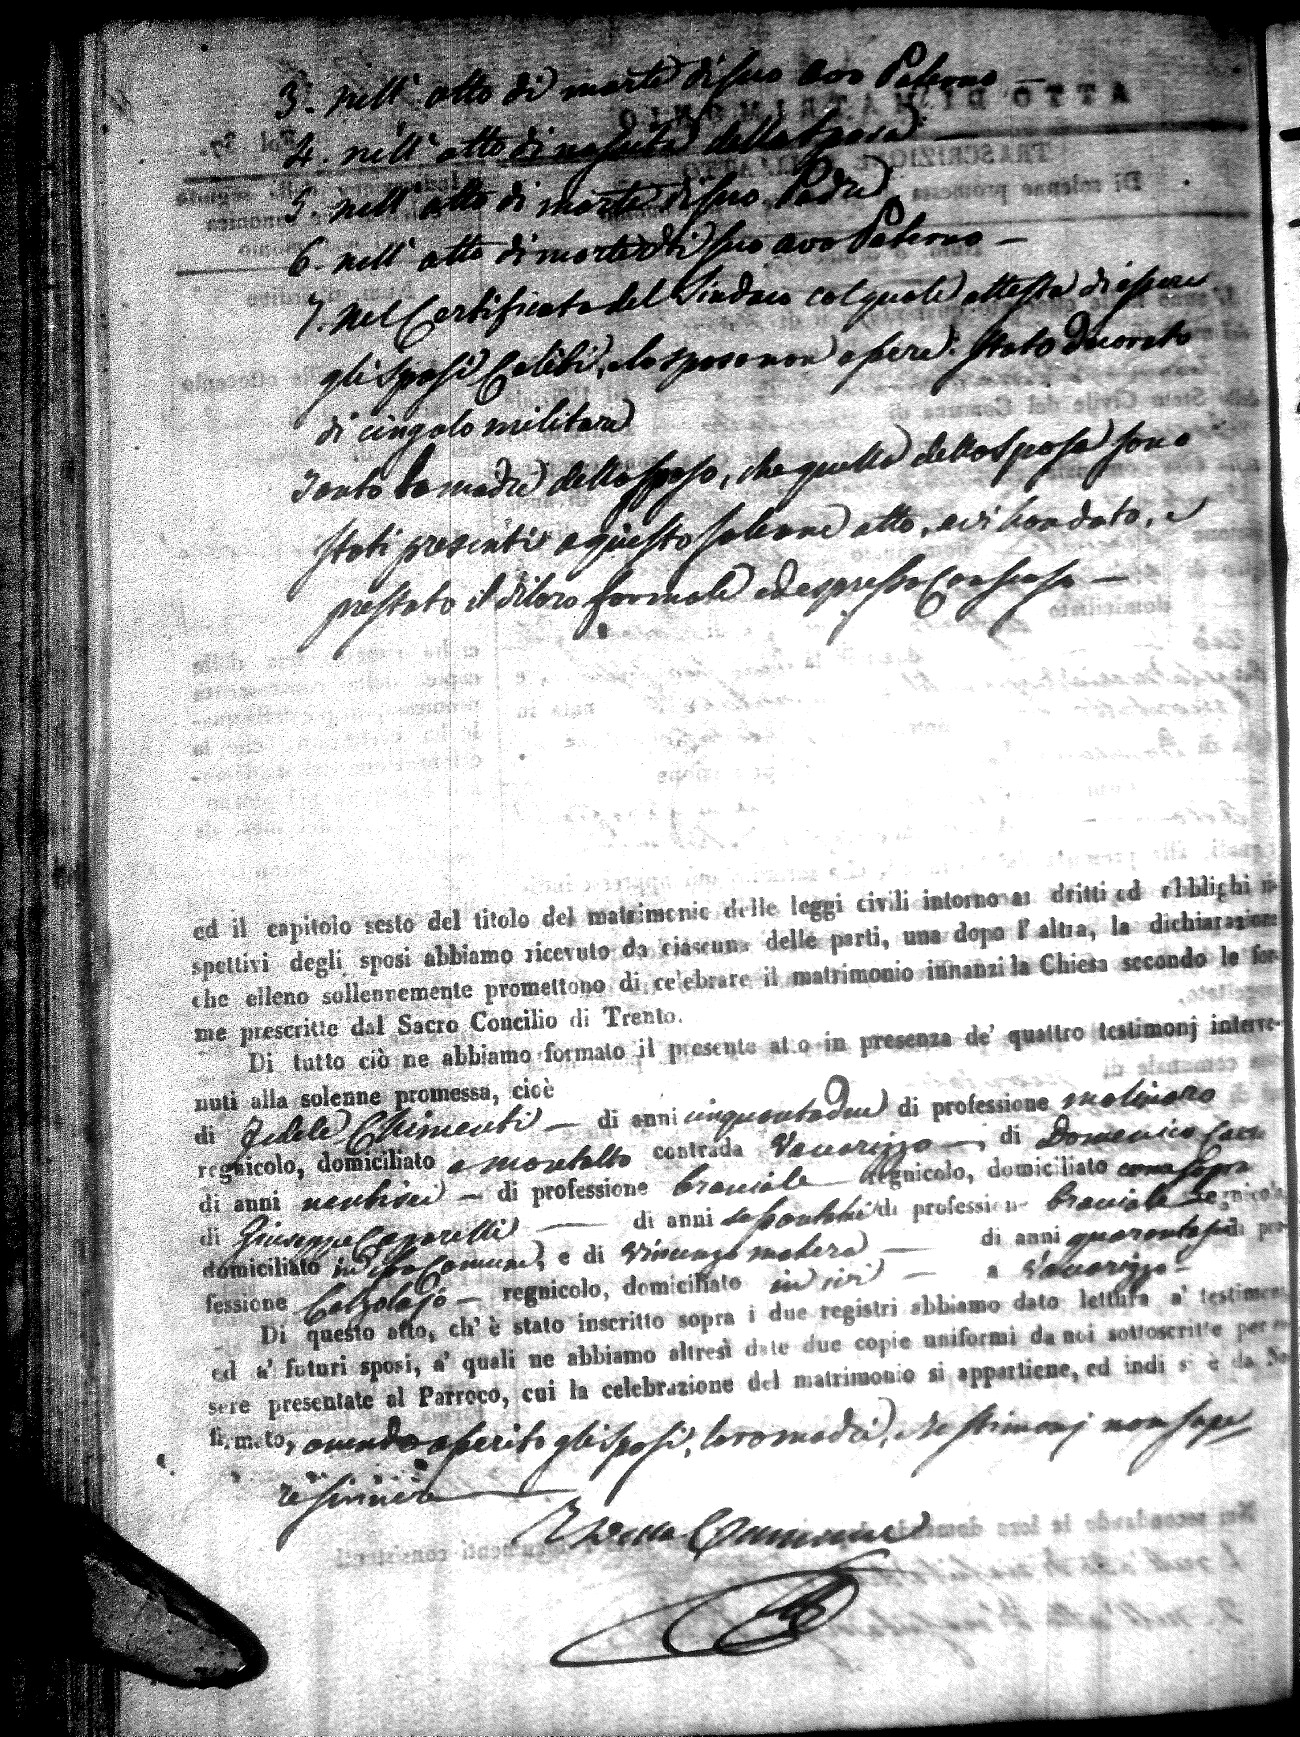 3. nell' atto di morte di suo avo Paterno —
4. nell' atto di nascita della Sposa
5. nell' atto di morte di suo Padre
6. nell' atto di morte di suo avo Paterno —
7. Nel Certificato del Sindaco col quale attesta di essere
gli sposi Celibi, e lo sposo non essere stato decorato
di cingolo militare
Tanto la madre dello sposo, che quella della Sposa sono
stati presenti a questo solenne atto, e vi han dato, e
prestato il di loro formale ed espresso Consenso —
ed il capitolo sesto del titolo del matrimonio delle leggi civili intorno ai dritti ed obblighi ri-
spettivi degli sposi abbiamo ricevuto da ciascuna delle parti, una dopo l' altra, la dichiarazione
che elleno sollennemente promettono di celebrare il matrimonio innanzi la Chiesa secondo le for-
me prescritte dal Sacro Concilio di Trento.
Di tutto ciò ne abbiamo formato il presente atto in presenza de' quattro testimonj interve-
nuti alla solenne promessa, cioè
di Fedele Chimenti — di anni cinquantadue di professione molinaro
regnicolo, domiciliato a Montalto contrada Vaccarizzo —, di Domenico
di anni ventisei — di professione bracciale regnicolo, domiciliato come sopra
di Giuseppe — di anni di professione bracciale regnicolo
domiciliato in Comune, e di Vincenzo Madera — di anni quarantasei di pro-
fessione Calzolajo — regnicolo, domiciliato in ivi — a Vaccarizzo —
Di questo atto, ch' è stato inscritto sopra i due registri abbiamo dato lettura a' testimonj
ed a' futuri sposi, a' quali ne abbiamo altresì date due copie uniformi da noi sottoscritte per es-
sere presentate al Parroco, cui la celebrazione del matrimonio si appartiene, ed indi si è da Noi
firmato, avendo asserito gli sposi, loro madri, e testimonj non sape-
re scrivere